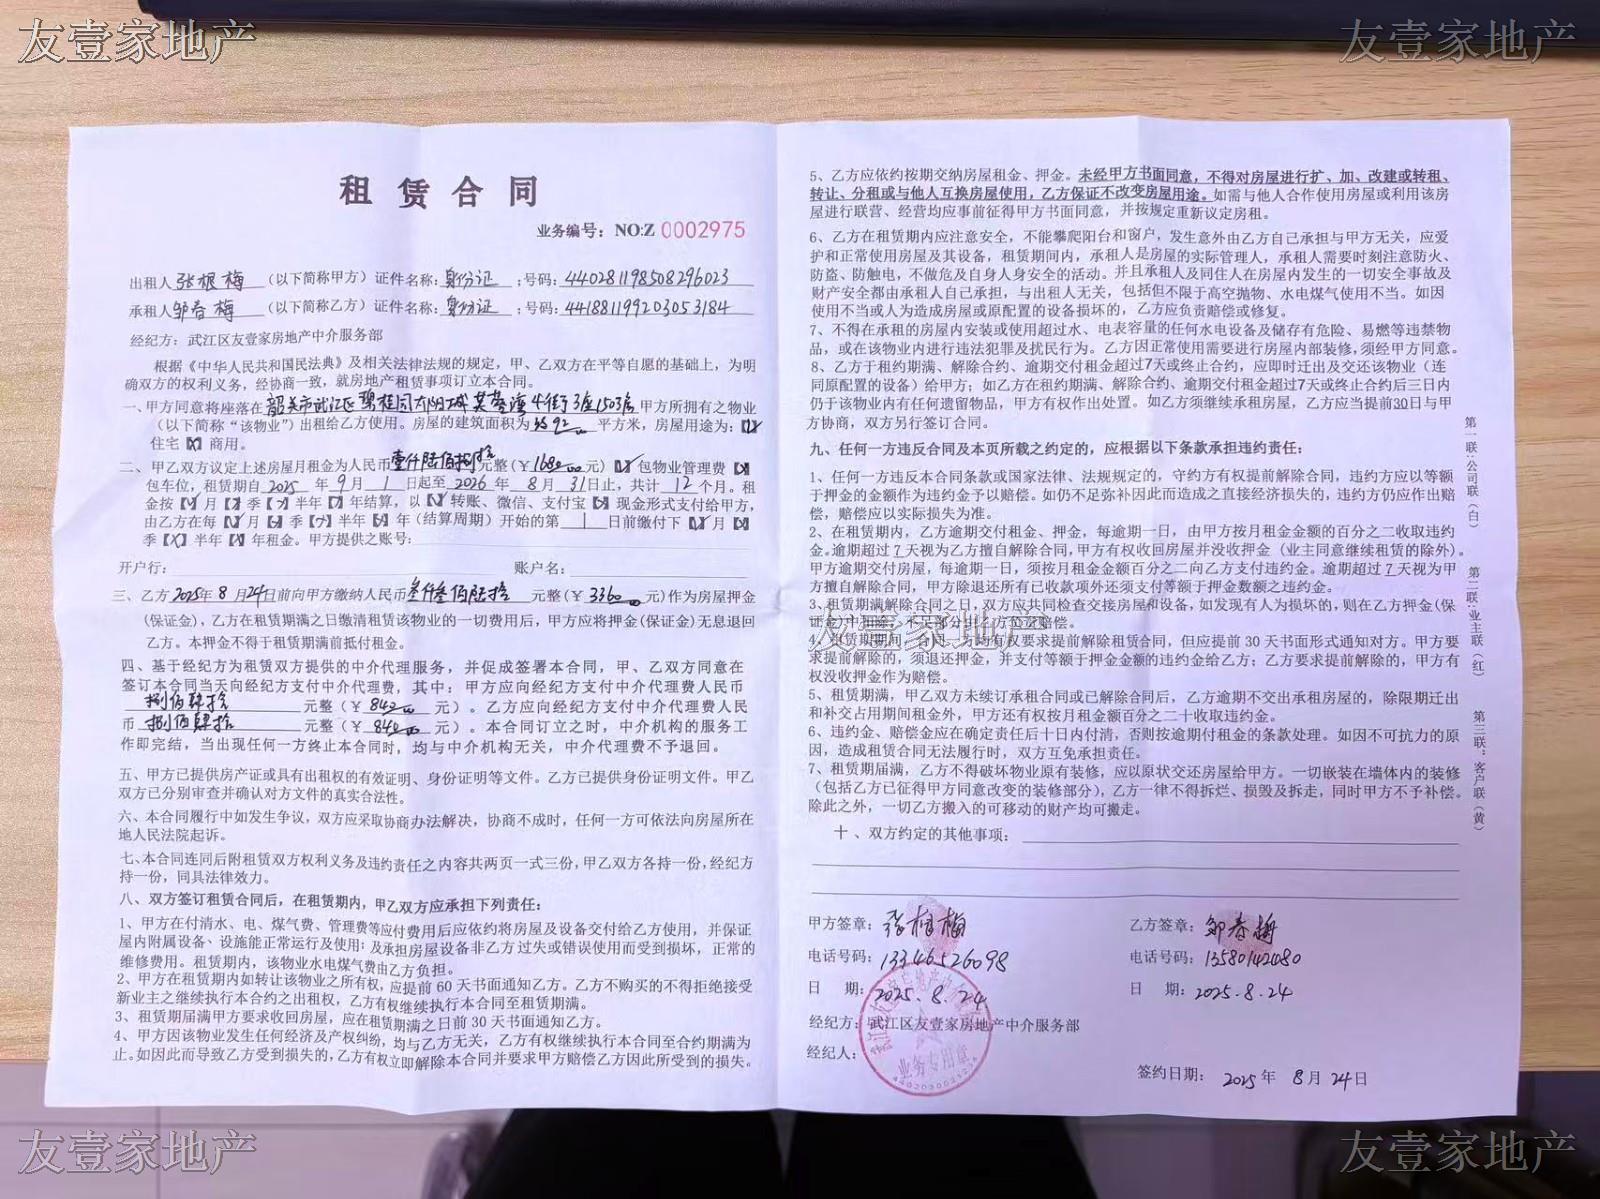 友壹家地产
友壹家地产
租赁合同
业务编号：NO:Z 0002975
出租人张根梅（以下简称甲方）证件名称：身份证；号码：440281198508296023
承租人邹春梅（以下简称乙方）证件名称：身份证；号码：441881199203053184
经纪方：武江区友壹家房地产中介服务部
根据《中华人民共和国民法典》及相关法律法规的规定，甲、乙双方在平等自愿的基础上，为明
确双方的权利义务，经协商一致，就房地产租赁事项订立本合同。
一、甲方同意将座落在韶关市武江区碧桂园太阳城芙蓉湾4街3座1503房甲方所拥有之物业
（以下简称“该物业”）出租给乙方使用。房屋的建筑面积为 平方米，房屋用途为：【✓】
住宅【×】商用。
二、甲乙双方议定上述房屋月租金为人民币壹仟陆佰捌拾元整（￥1680.00元）【✓】包物业管理费【×】
包车位，租赁期自2025年9月1日起至2026年8月31日止，共计12个月。租
金按【✓】月【×】季【×】半年【×】年结算，以【✓】转账、微信、支付宝【×】现金形式支付给甲方，
由乙方在每【✓】月【×】季【×】半年【×】年（结算周期）开始的第1日前缴付下【✓】月【×】
季【×】半年【×】年租金。甲方提供之账号：
开户行： 账户名：
三、乙方2025年8月24日前向甲方缴纳人民币叁仟叁佰陆拾元整（￥3360.00元）作为房屋押金
（保证金），乙方在租赁期满之日缴清租赁该物业的一切费用后，甲方应将押金（保证金）无息退回
乙方。本押金不得于租赁期满前抵付租金。
四、基于经纪方为租赁双方提供的中介代理服务，并促成签署本合同，甲、乙双方同意在
签订本合同当天向经纪方支付中介代理费，其中：甲方应向经纪方支付中介代理费人民币
捌佰肆拾元整（￥840.00元）。乙方应向经纪方支付中介代理费人民
币捌佰肆拾元整（￥840.00元）。本合同订立之时，中介机构的服务工
作即完结，当出现任何一方终止本合同时，均与中介机构无关，中介代理费不予退回。
五、甲方已提供房产证或具有出租权的有效证明、身份证明等文件。乙方已提供身份证明文件。甲乙
双方已分别审查并确认对方文件的真实合法性。
六、本合同履行中如发生争议，双方应采取协商办法解决，协商不成时，任何一方可依法向房屋所在
地人民法院起诉。
七、本合同连同后附租赁双方权利义务及违约责任之内容共两页一式三份，甲乙双方各持一份，经纪方
持一份，同具法律效力。
八、双方签订租赁合同后，在租赁期内，甲乙双方应承担下列责任：
1、甲方在付清水、电、煤气费、管理费等应付费用后应依约将房屋及设备交付给乙方使用，并保证
屋内附属设备、设施能正常运行及使用；及承担房屋设备非乙方过失或错误使用而受到损坏，正常的
维修费用。租赁期内，该物业水电煤气费由乙方负担。
2、甲方在租赁期内如转让该物业之所有权，应提前60天书面通知乙方。乙方不购买的不得拒绝接受
新业主之继续执行本合约之出租权，乙方有权继续执行本合同至租赁期满。
3、租赁期届满甲方要求收回房屋，应在租赁期满之日前30天书面通知乙方。
4、甲方因该物业发生任何经济及产权纠纷，均与乙方无关，乙方有权继续执行本合同至合约期满为
止。如因此而导致乙方受到损失的，乙方有权立即解除本合同并要求甲方赔偿乙方因此所受到的损失。
5、乙方应依约按期交纳房屋租金、押金。未经甲方书面同意，不得对房屋进行扩、加、改建或转租、
转让、分租或与他人互换房屋使用，乙方保证不改变房屋用途。如需与他人合作使用房屋或利用该房
屋进行联营、经营均应事前征得甲方书面同意，并按规定重新议定房租。
6、乙方在租赁期内应注意安全，不能攀爬阳台和窗户，发生意外由乙方自己承担与甲方无关，应爱
护和正常使用房屋及其设备，租赁期间内，承租人是房屋的实际管理人，承租人需要时刻注意防火、
防盗、防触电，不做危及自身人身安全的活动。并且承租人及同住人在房屋内发生的一切安全事故及
财产安全都由承租人自己承担，与出租人无关，包括但不限于高空抛物、水电煤气使用不当。如因
使用不当或人为造成房屋或原配置的设备损坏的，乙方应负责赔偿或修复。
7、不得在承租的房屋内安装或使用超过水、电表容量的任何水电设备及储存有危险、易燃等违禁物
品，或在该物业内进行违法犯罪及扰民行为。乙方因正常使用需要进行房屋内部装修，须经甲方同意。
8、乙方于租约期满、解除合约、逾期交付租金超过7天或终止合约，应即时迁出及交还该物业（连
同原配置的设备）给甲方；如乙方在租约期满、解除合约、逾期交付租金超过7天或终止合约后三日内
仍于该物业内有任何遗留物品，甲方有权作出处置。如乙方须继续承租房屋，乙方应当提前30日与甲
方协商，双方另行签订合同。
九、任何一方违反合同及本页所载之约定的，应根据以下条款承担违约责任：
1、任何一方违反本合同条款或国家法律、法规规定的，守约方有权提前解除合同，违约方应以等额
于押金的金额作为违约金予以赔偿。如仍不足弥补因此而造成之直接经济损失的，违约方仍应作出赔
偿，赔偿应以实际损失为准。
2、在租赁期内，乙方逾期交付租金、押金，每逾期一日，由甲方按月租金金额的百分之二收取违约
金。逾期超过7天视为乙方擅自解除合同，甲方有权收回房屋并没收押金（业主同意继续租赁的除外）。
甲方逾期交付房屋，每逾期一日，须按月租金金额百分之二向乙方支付违约金。逾期超过7天视为甲
方擅自解除合同，甲方除退还所有已收款项外还须支付等额于押金数额之违约金。
3、租赁期满解除合同之日，双方应共同检查交接房屋和设备，如发现有人为损坏的，则在乙方押金（保
证金）中扣除，不足部分由乙方负责赔偿。
友壹家地产
4、租赁期期间，任何一方均有权要求提前解除租赁合同，但应提前30天书面形式通知对方。甲方要
求提前解除的，须退还押金，并支付等额于押金金额的违约金给乙方；乙方要求提前解除的，甲方有
权没收押金作为赔偿。
5、租赁期满，甲乙双方未续订承租合同或已解除合同后，乙方逾期不交出承租房屋的，除限期迁出
和补交占用期间租金外，甲方还有权按月租金额百分之二十收取违约金。
6、违约金、赔偿金应在确定责任后十日内付清，否则按逾期付租金的条款处理。如因不可抗力的原
因，造成租赁合同无法履行时，双方互免承担责任。
7、租赁期届满，乙方不得破坏物业原有装修，应以原状交还房屋给甲方。一切嵌装在墙体内的装修
（包括乙方已征得甲方同意改变的装修部分），乙方一律不得拆烂、损毁及拆走，同时甲方不予补偿。
除此之外，一切乙方搬入的可移动的财产均可搬走。
十、双方约定的其他事项：
甲方签章：张根梅 乙方签章：邹春梅
电话号码：13346526098 电话号码：13580142480
日 期：2025.8.24 日 期：2025.8.24
经纪方：武江区友壹家房地产中介服务部
经纪人：
业务专用章
签约日期：2025年8月24日
第一联：公司联（白）
第二联：业主联（红）
第三联：客户联（黄）
友壹家地产
友壹家地产